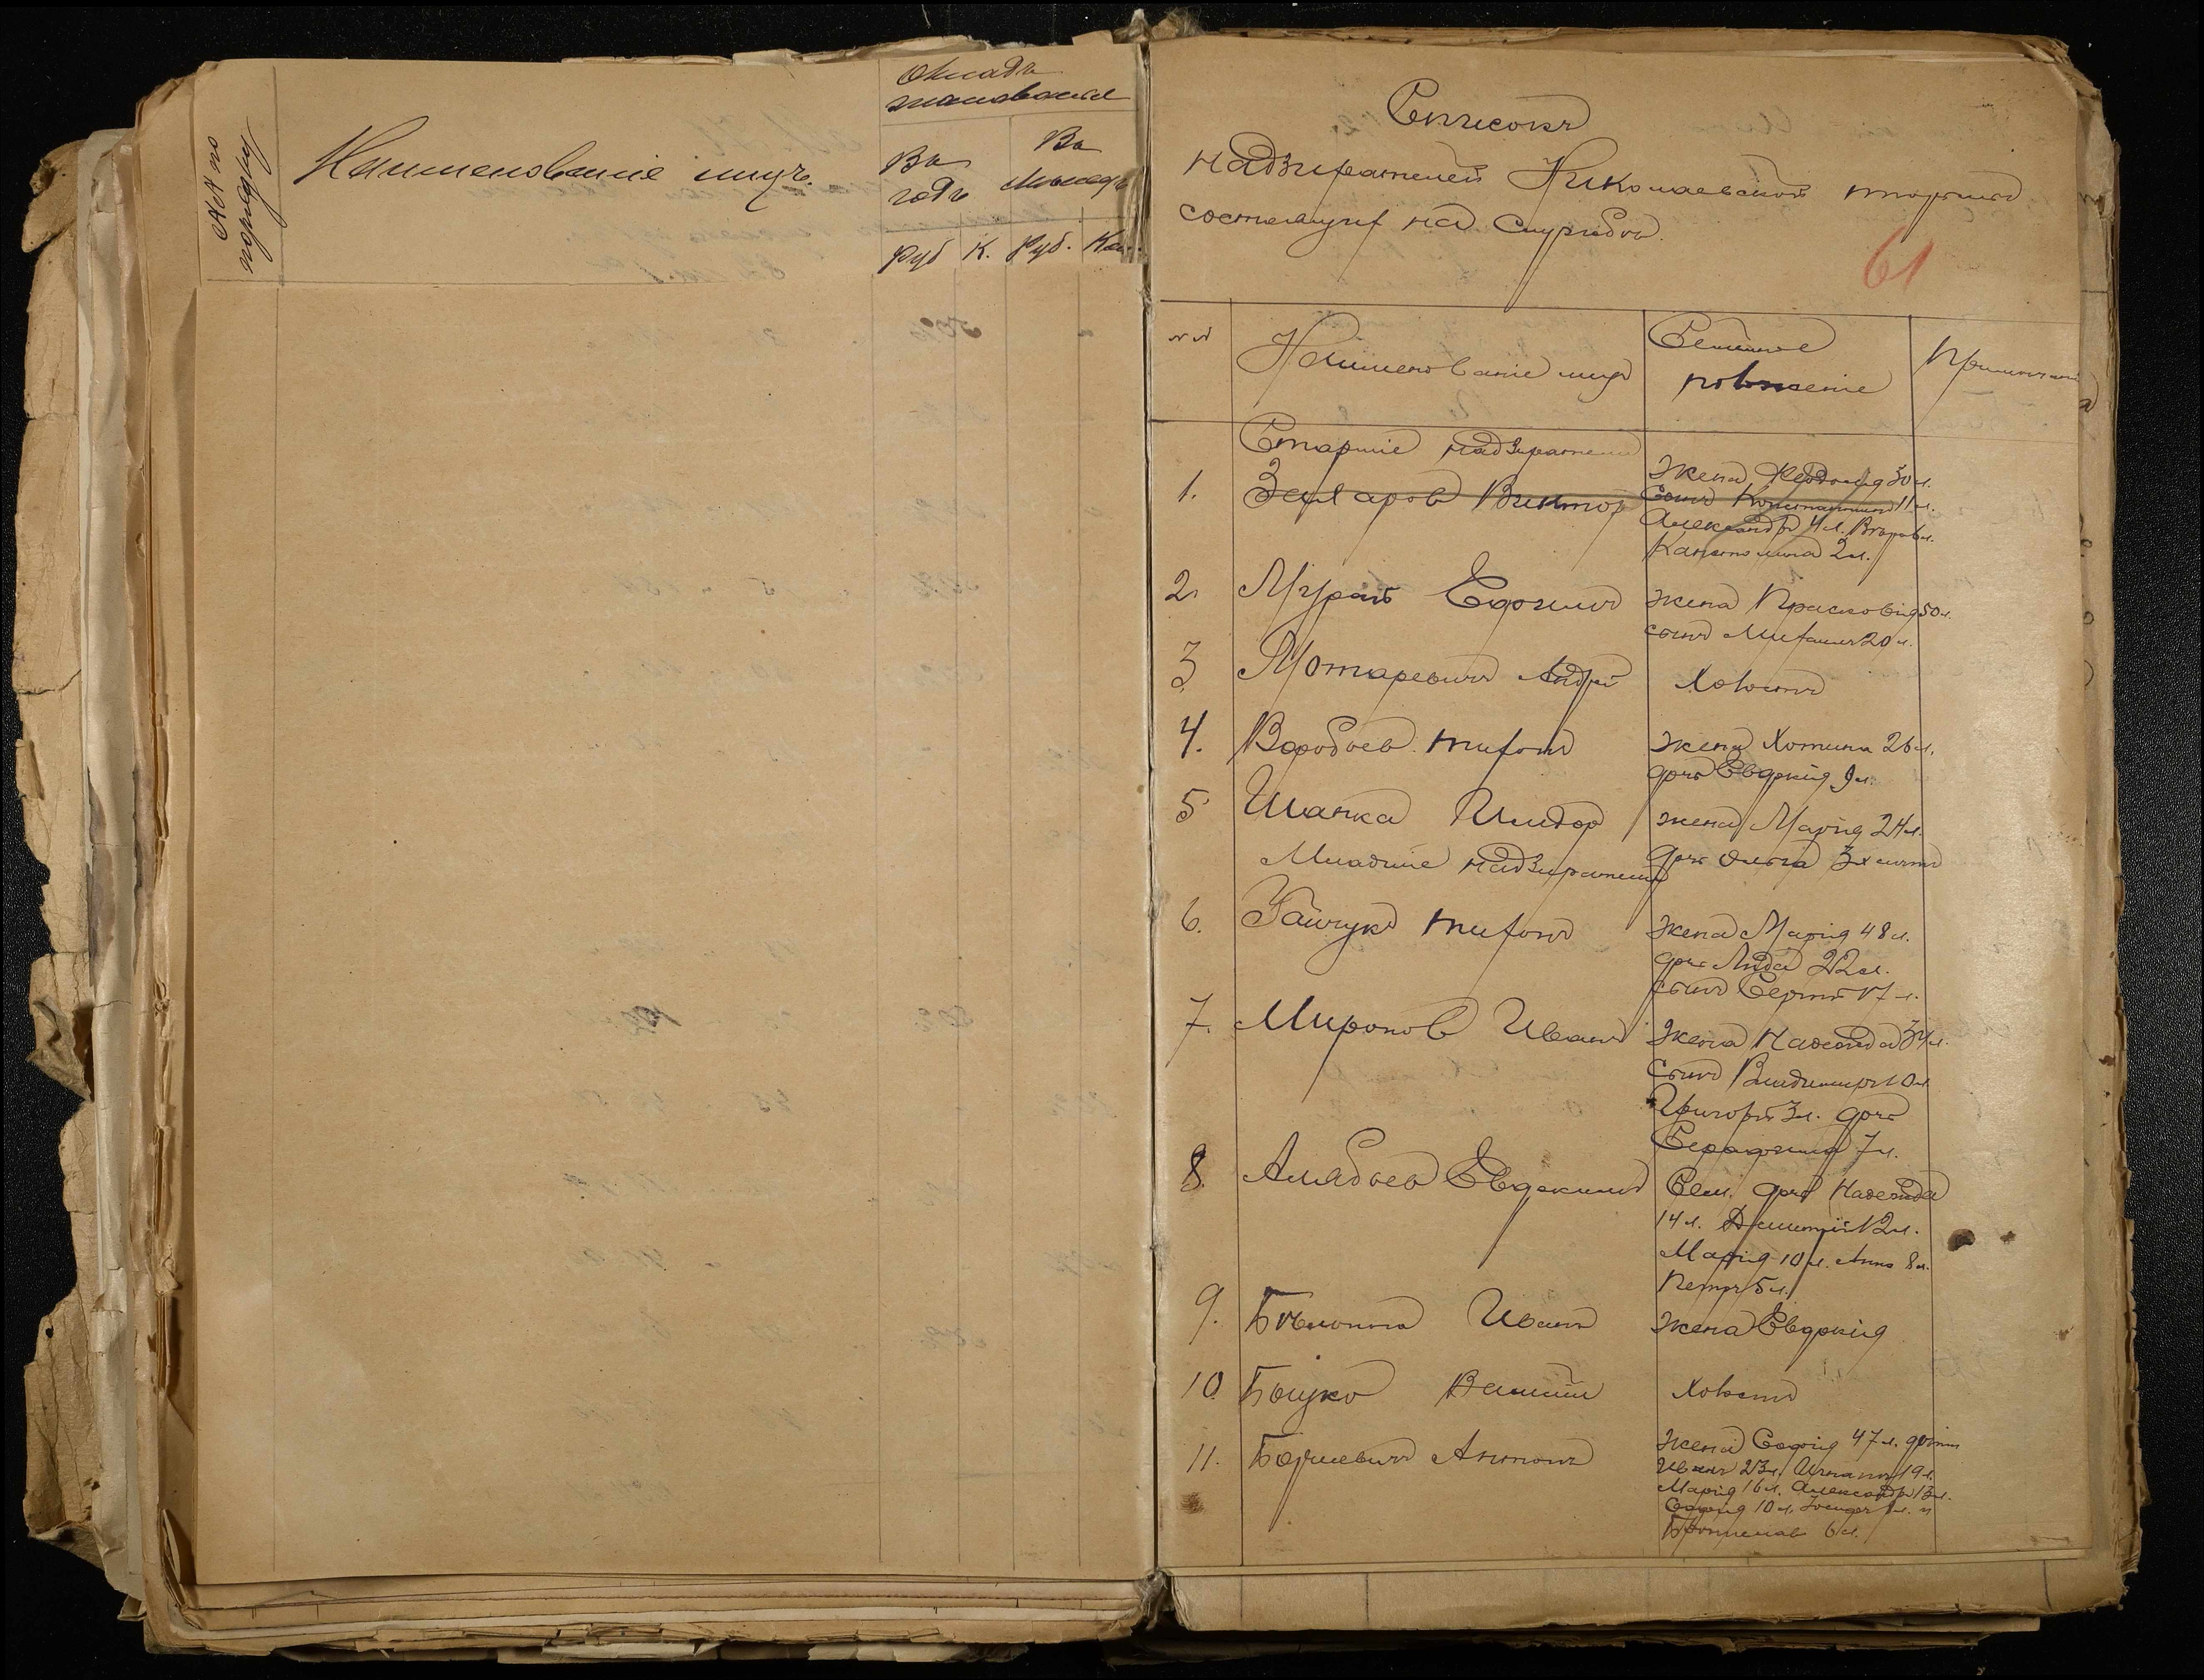 №№ по
порядку
Наименованіе лицъ.
Окладъ
жалованья
Въ
годъ
Въ
Мѣсяцъ
Руб
К.
Руб.
Коп.
Списокъ
надзирателей Николаевской тюрьмы
состоящих на службѣ.
61
№№
Наименованіе лицъ
Семейное
положеніе
Примѣчаніе
Старшіе надзиратели
1. Захаров Виктор
Жена 30 л.
Сынъ Константинъ 11 л.
Александръ 4 л.
Капитолина 2 л.
2. Ефимъ
жена Прасковія 50 л.
сынъ Михаилъ 20 л.
3 Мотаревичъ Андрей
Холостъ
4. Воробьев Тихонъ
жена 26 л.
дочь Евдокія 9 л.
5 Шапка Исидор
жена Марія 24 л.
дочь Ольга 3х лѣтъ
Младшіе надзиратели
6. Гайчукъ Тихонъ
жена Марія 48 л.
дочь Лида 22 л.
сынъ Сергѣй 17 л.
7. Миронов Иванъ
Жена Надежда 34 л.
сынъ Владимиръ 10 л.
Григорій 3 л. дочь
Серафима 7 л.
8. Алябьев Евдокимъ
Сем. дочь Надежда
14 л. Дмитрій 12 л.
Марія 10 л. Анна 8 л.
Петръ 5 л.
9. Иванъ
жена Евдокія
10 Боцуко Василій
Холостъ
11. Антонъ
жена Софія 47 л. дѣти
Иванъ 23 л. Игнатъ 19 л.
Марія 16 л. Александръ 13 л.
Софія 10 л. и
Брониславъ 6 л.